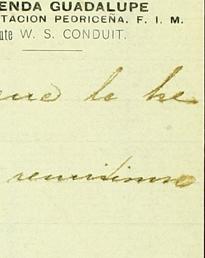 ENDA GUADALUPE
TACION PEDRICEÑA. F. I. M.
nte W. S. CONDUIT.
que le he
remitimos